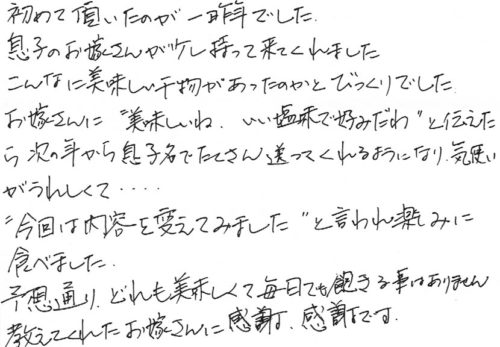 初めて頂いたのが一昨年でした.
息子のお嫁さんが少し持って来てくれました
こんなに美味しい干物があったのかとびっくりでした.
お嫁さんに "美味しいね. いい塩味で好みだわ" と伝えた
ら 次の年から息子名でたくさん送ってくれるようになり. 気使い
がうれしくて・・・・
"今回は内容を変えてみました" と言われ楽しみに
食べました.
予想通り. どれも美味しくて毎日でも飽きる事はありません
教えてくれたお嫁さんに感謝. 感謝です.